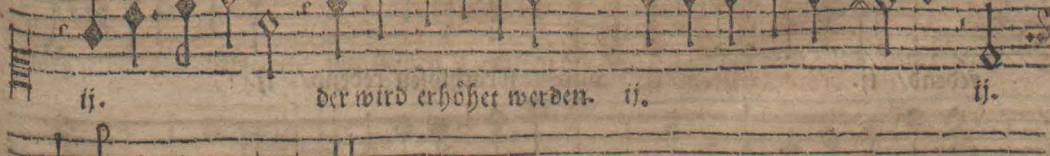 ij. der wird erhöhet werden. ij. ij.